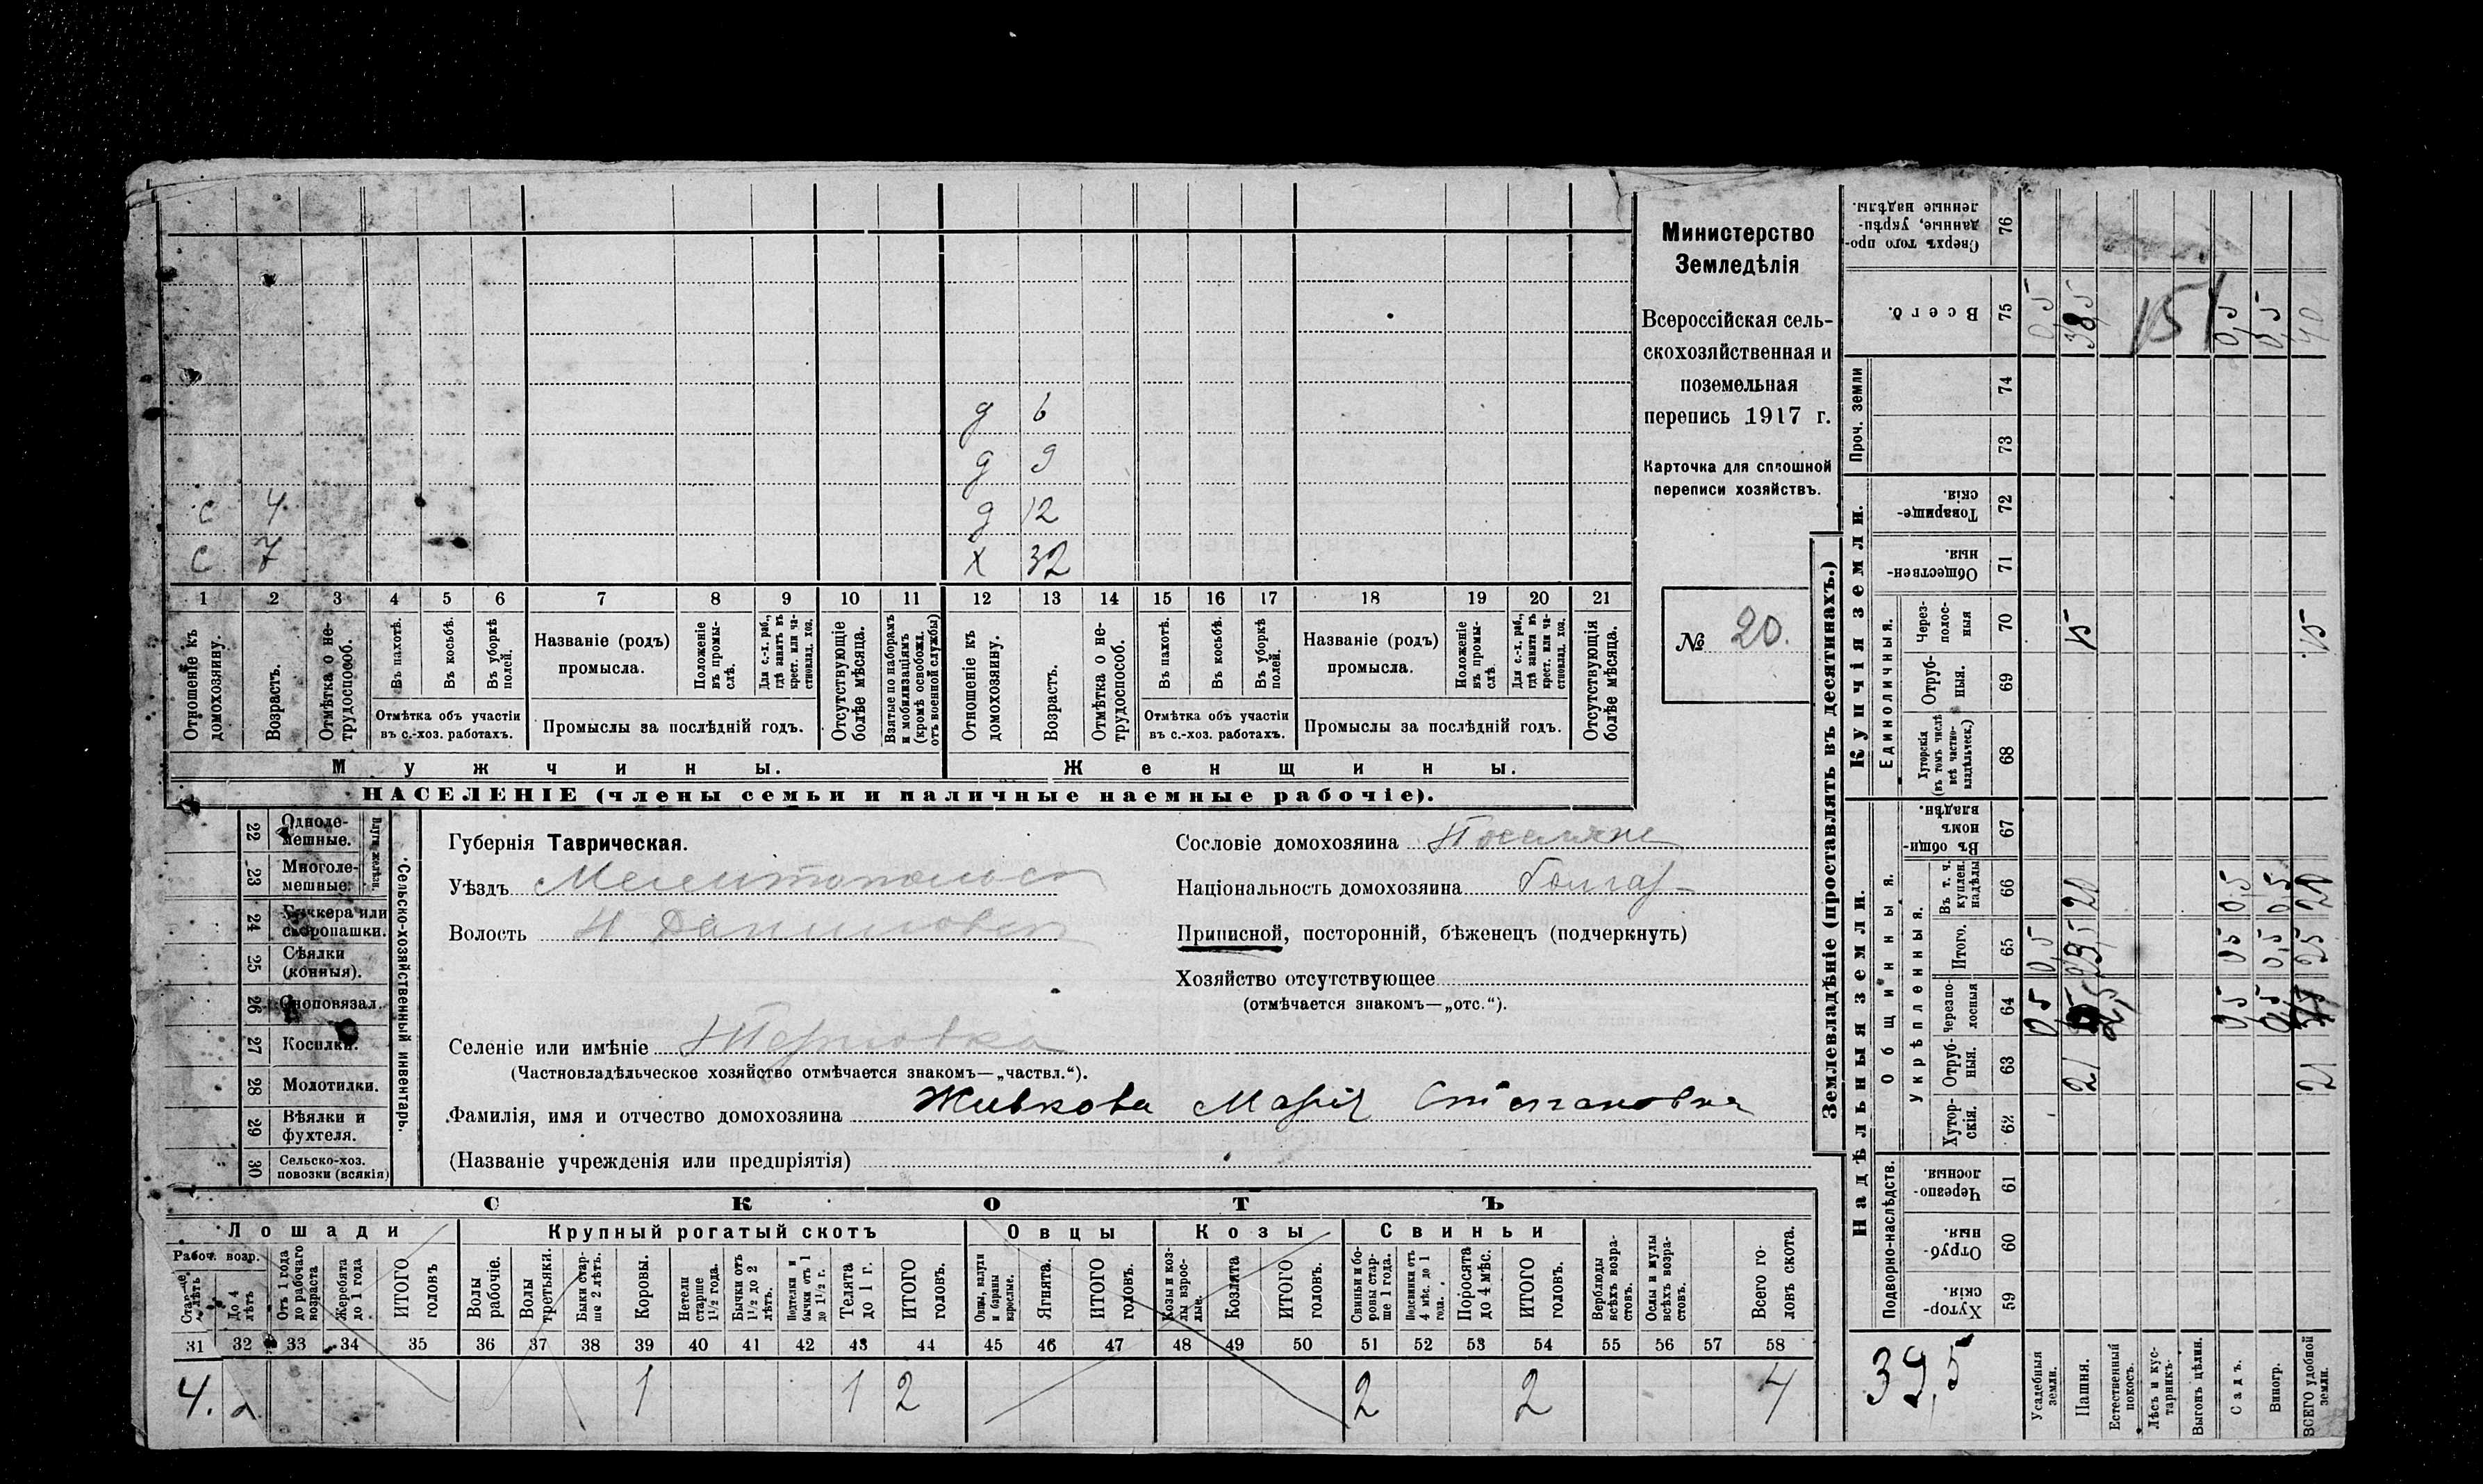 g 6
g 9
с 4 g 12
с 7 х 32
1 2 3 4 5 6 7 8 9 10 11 12 13 14 15 16 17 18 19 20 21
Отношеніе къ домохозяину.
Возрастъ.
Отмѣтка о нетрудоспособ.
Въ пахотѣ.
Въ косьбѣ.
Въ уборкѣ полей.
Отмѣтка объ участіи
въ с.-хоз. работахъ.
Названіе (родъ)
промысла.
Положеніе въ промыслѣ.
Для с.-х. раб., гдѣ занятъ въ крест. или частновлад. хоз.
Промыслы за послѣдній годъ.
Отсутствующіе болѣе мѣсяца.
Взятые по наборамъ и мобилизаціямъ (кромѣ освобожд. отъ военной службы)
Отношеніе къ домохозяину.
Возрастъ.
Отмѣтка о нетрудоспособ.
Въ пахотѣ.
Въ косьбѣ.
Въ уборкѣ полей.
Отмѣтка объ участіи
въ с.-хоз. работахъ.
Названіе (родъ)
промысла.
Положеніе въ промыслѣ.
Для с.-х. раб., гдѣ занятъ въ крест. или частновлад. хоз.
Промыслы за послѣдній годъ.
Отсутствующія болѣе мѣсяца.
Мужчины. Женщины.
НАСЕЛЕНІЕ (члены семьи и наличные наемные рабочіе).
Министерство
Земледѣлія
Всероссійская сель-
скохозяйственная и
поземельная
перепись 1917 г.
Карточка для сплошной
переписи хозяйствъ.
№ 20.
Сельско-хозяйственный инвентарь.
22 Одноле-
мешные.
23 Многоле-
мешные.
24 Бучкера или
скоропашки.
25 Сѣялки
(конныя).
26 Сноповязал.
27 Косилки.
28 Молотилки.
29 Вѣялки и
фухтеля.
30 Сельско-хоз.
повозки (всякія)
Губернія Таврическая.
Уѣздъ Мелитопольск
Волость Н Даниловск
Селеніе или имѣніе Терновка
(Частновладѣльческое хозяйство отмѣчается знакомъ—„частвл.“).
Фамилія, имя и отчество домохозяина Живкова Марія Степановна
(Названіе учрежденія или предпріятія)
Сословіе домохозяина Поселяне
Національность домохозяина болгар
Приписной, посторонній, бѣженецъ (подчеркнуть)
Хозяйство отсутствующее
(отмѣчается знакомъ—„отс.“).
СКОТЪ
Лошади Крупный рогатый скотъ Овцы Козы Свиньи
Рабоч. возр.
До 4 лѣтъ
Отъ 1 года до рабочаго возраста
Жеребята до 1 года
ИТОГО головъ
Волы рабочіе.
Волы третьяки.
Быки старше 2 лѣтъ.
Коровы.
Нетели старше 1½ года.
Бычки отъ 1½ до 2 лѣтъ.
Подтелки и бычки отъ 1 до 1½ г.
Телята до 1 г.
ИТОГО головъ.
Овцы, валухи и бараны взрослые.
Ягнята.
ИТОГО головъ.
Козы и козлы взрослые.
Козлята
ИТОГО головъ.
Свиньи и боровы старше 1 года.
Подсвинки отъ 4 мѣс. до 1 года.
Поросята до 4 мѣс.
ИТОГО головъ.
Верблюды всѣхъ возрастовъ.
Ослы и мулы всѣхъ возрастовъ.
Всего головъ скота.
31 32 33 34 35 36 37 38 39 40 41 42 43 44 45 46 47 48 49 50 51 52 53 54 55 56 57 58
4. 1 1 2 2 2 4
Землевладѣніе (проставлять въ десятинахъ.)
Надѣльныя земли. Купчія земли.
Подворно-наслѣдств.
Общинныя.
Укрѣпленныя.
Единоличныя.
Проч. земли
Хуторскія. 59
Отрубныя. 60
Черезполосныя. 61
Хуторскія. 62
Отрубныя. 63
Черезполосныя 64
Итого. 65
Въ т. ч. куплен. надѣлы 66
Въ общинномъ владѣн. 67
Хуторскія (въ томъ числѣ всѣ частновладѣльческ.) 68
Отрубныя. 69
Черезполосныя 70
Общественныя. 71
Товарищескія. 72
73
74
Всего. 75
Сверхъ того проданные, укрѣпленные надѣлы. 76
39,5
Усадебныя земли. 0,5 0,5 0,5
Пашня. 21 20 15 38,5
Естественный покосъ.
Лѣсъ и кустарникъ.
Выгонъ цѣлин.
Садъ. 0,5 0,5 0,5 0,5
Виногр. 0,5 0,5 0,5 0,5
ВСЕГО удобной земли. 21 25 20 15 40
151